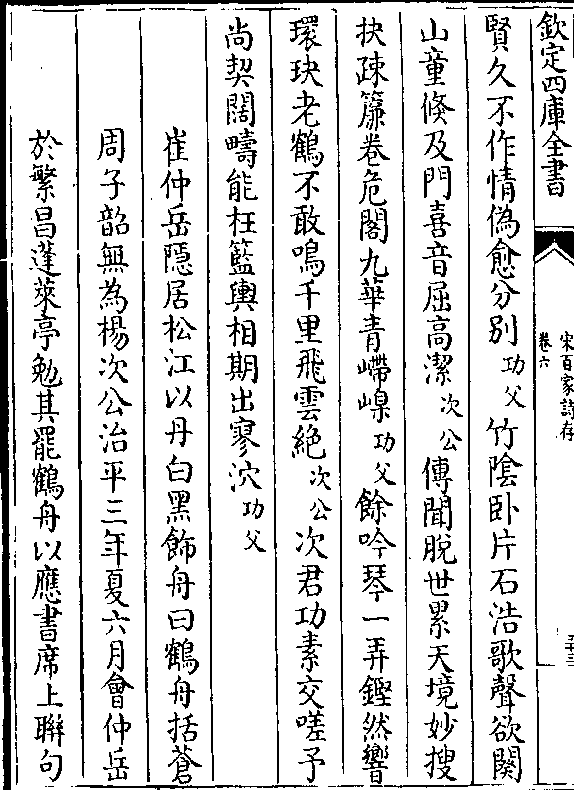 欽定四庫全書
宋百家詩存
卷六
五十三
賢久不作情偽愈分別功父竹陰卧片石浩歌聲欲闋
山童倐及門喜音屈高潔次公傳聞脫世累天境妙搜
抉疎簾卷危閣九華青嵽嵲功父餘吟琴一弄鏗然響
環玦老鶴不敢鳴千里飛雲絶次公次君功素交嗟予
尚契闊疇能枉籃輿相期出寥泬功父
崔仲岳隱居松江以丹白黑飾舟曰鶴舟括蒼
周子韶無為楊次公治平三年夏六月會仲岳
於繁昌蓬萊亭勉其罷鶴舟以應書席上聨句